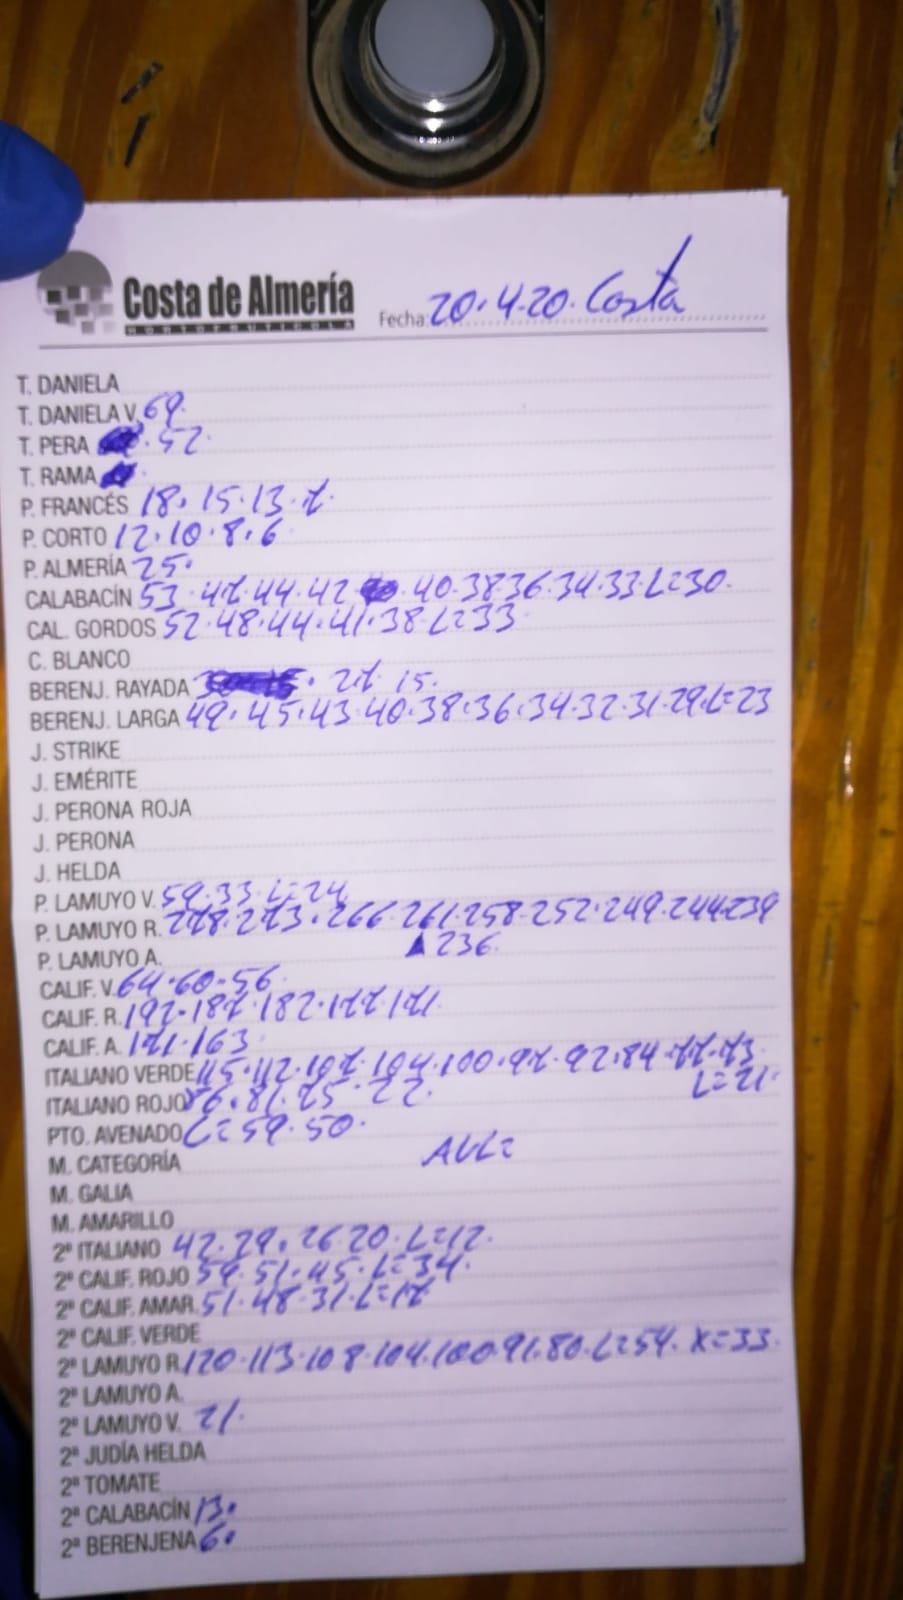 Costa de Almería
HORTOFRUTICOLA
Fecha: 20.4.20. Costa
T. DANIELA
T. DANIELA V. 69.
T. PERA . 52.
T. RAMA
P. FRANCÉS 18. 15. 13. 7.
P. CORTO 12. 10. 8. 6
P. ALMERÍA 25.
CALABACÍN 53. 47. 44. 42. 40. 38. 36. 34. 33. L=30.
CAL. GORDOS 52. 48. 44. 41. 38. L=33.
C. BLANCO
BERENJ. RAYADA . 27. 15.
BERENJ. LARGA 49. 45. 43. 40. 38. 36. 34. 32. 31. 29. L=23
J. STRIKE
J. EMÉRITE
J. PERONA ROJA
J. PERONA
J. HELDA
P. LAMUYO V. 59. 33. L=24
P. LAMUYO R. 278. 273. 266. 261. 258. 252. 249. 244. 239
P. LAMUYO A. 236.
CALIF. V. 64. 60. 56.
CALIF. R. 192. 187. 182. 177. 171.
CALIF. A. 171. 163.
ITALIANO VERDE 115. 112. 107. 104. 100. 97. 92. 84. 77. 73.
L=21.
ITALIANO ROJO 81. 75. 22.
PTO. AVENADO L=59. 50.
M. CATEGORÍA
M. GALIA
M. AMARILLO
2ª ITALIANO 42. 29. 26. 20. L=12.
2ª CALIF. ROJO 59. 51. 45. L=34.
2ª CALIF. AMAR. 51. 48. 31. L=17
2ª CALIF. VERDE
2ª LAMUYO R. 120. 113. 108. 104. 100. 91. 80. L=54. X=33.
2ª LAMUYO A.
2ª LAMUYO V. 21.
2ª JUDÍA HELDA
2ª TOMATE
2ª CALABACÍN 13.
2ª BERENJENA 6.